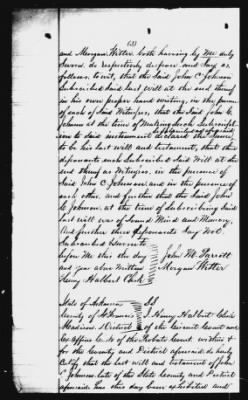 (33)
and Morgan Witter both having by me duly
sworn do respectively depose and say as
follows, to wit, that the Said John C Johnson
Subscribed Said last will at the end thereof
in his own proper hand writing, in the presence
of each of Said Witnesses, that the Said John C
Johnson at the time of making such subscript
ion to said instrument declared the same
to be his last will and testament, that the
deponants each Subscribed Said Will at the
end thereof as Witnesses, in the presence of
Said John C Johnson, and in the presence of
each other, and further that the Said John
C Johnson, at the time of subscribing Said
last will was of Sound Mind and Memory
And further these deponants Say Not
Subscribed & Sworn to
before Me this the day
and year above written
Henry Halbert Clerk
John M. Parrott
Morgan Witter
State of Arkansas SS
County of
District
I, Henry Halbert Clerk
of the Circuit Court and
Ex Officio Clerk of the Probate Court within &
for the County and District aforesaid do hereby
Certify that the last will and testament of John
C Johnson, late of the State County and District
aforesaid has this day been exhibited and